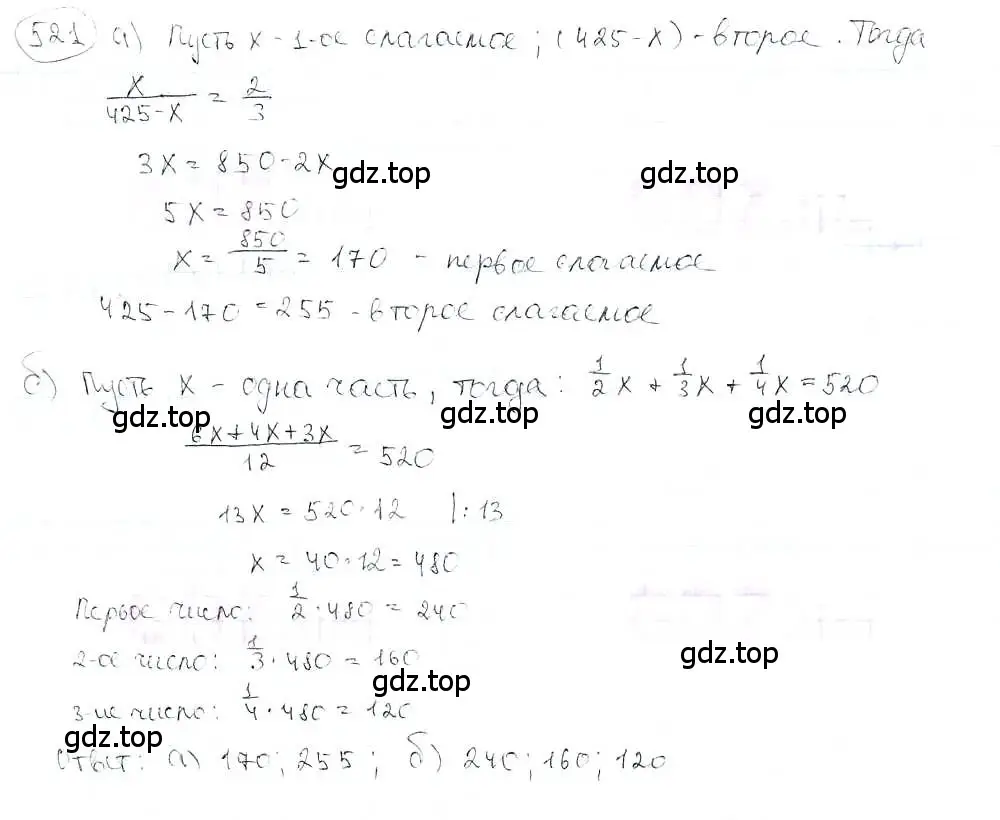 521 а) Пусть x - 1-ое слагаемое; (425-x) - второе. Тогда
x/(425-x) = 2/3
3x = 850-2x
gdz.top gdz.top
5x = 850
x = 850/5 = 170 - первое слагаемое
425-170 = 255 - второе слагаемое
б) Пусть x - одна часть, тогда: 1/2 x + 1/3 x + 1/4 x = 520
gdz.top gdz.top gdz.top
(6x+4x+3x)/12 = 520
13x = 520·12 |:13
x = 40·12 = 480
Первое число: 1/2·480 = 240
2-ое число: 1/3·480 = 160
gdz.top
gdz.top
3-ие число: 1/4·480 = 120
gdz.top
Ответ: а) 170; 255; б) 240; 160; 120